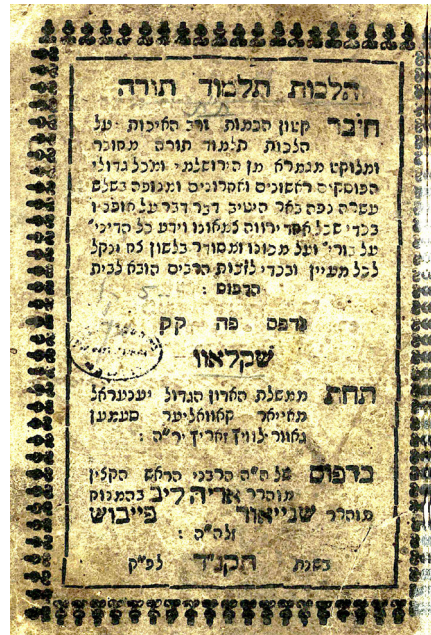 הלכות תלמוד תורה
חיבר קטון הכמות ורב האיכות על
הלכות תלמוד תורה מחובר
ומלוקט מגמרא מן הירושלמי ומכל גדולי
הפוסקים ראשונים ואחרונים ומנופה בשלש
עשרה נפה באר היטיב דבר דבר על אופניו
בכדי שכל אחד ירווה צמאונו וידע כל הדיני׳
על בורי׳ ועל מכונו ומסודר בלשון צח ונקל
לכל מעיין ובכדי לזכות הרבים הובא לבית
הדפוס :
נדפס פה קק
שקלאוו
תחת ממשלת האדון הגדול יענעראל
מאייאר קאוואליער סעמען
גאוורילוויץ זאריץ יר״ה :
בדפוס של ה״ה הרבני הראש הקצין
מוהרר אריה ליב בהמנוח
מוהרר שנייאור פייבוש
זלה״ה :
בשנת תקנ״ד לפ״ק